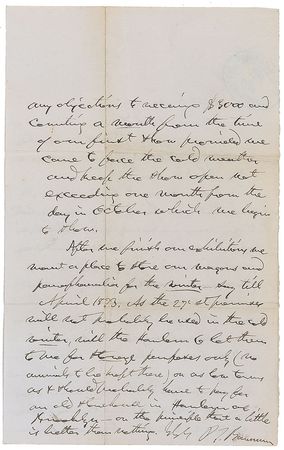 any objections to receiving $3000 and
counting a month from the time
of our first show provided we
came to face the cold weather
and keep the show open not
exceeding one month from the
day in October which we begin
to show.
After we finish our exhibitions we
want a place to store our wagons and
paraphernalia for the winter say till
April 1873. As the 27th st premises
will not probably be used in the cold
winter, will the Harlem Co let them
to me for storage purposes only (no
animals to be kept there) on as low terms
as I should probably have to pay for
an old in Harlem or
Brooklyn — on the principle that a little
is better than nothing P. T. Barnum